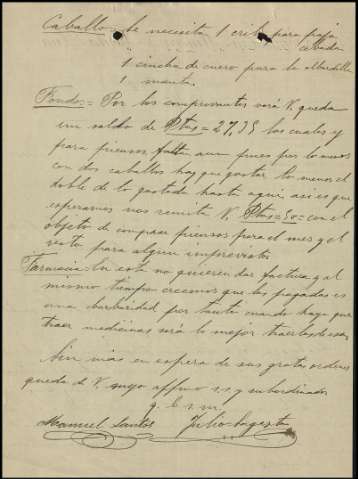 Caballo = Se necesita 1 criba para paja
cebada
1 cincha de cuero para la albardilla
1 manta.
Fondos = Por los comprovantes verá V. queda
un saldo de Ptas = 27,35 los cuales y
para piensos faltan aun pues por lo menos
con dos caballos hay que gastar lo menos el
doble de lo gastado hasta aqui, asi es que
esperamos nos remita V. Ptas = 50 = con el
objeto de comprar piensos para el mes y el
resto para algun imprevisto
Farmacia En esta no quieren dar factura y al
mismo tiempo creemos que las pagadas es
una barbaridad por tanto cuando haya que
traer medicinas será lo mejor traerlas de esa
Sin mas en espera de sus gratas ordenes
queda de V. suyo affmo s.s. y subordinados
q. b. s. m.
Manuel Santos Julio Sagasta